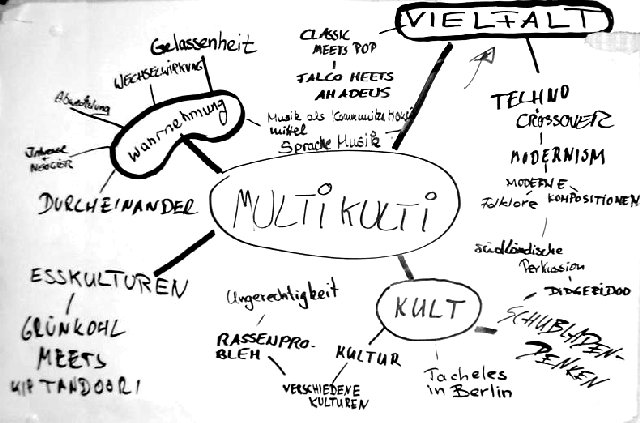 VIELFALT
CLASSIC
MEETS POP
FALCO MEETS
AMADEUS
Gelassenheit
WECHSELWIRKUNG
Wahrnehmung
Musik als
mittel
Sprache Musik
TECHNO
CROSSOVER
MODERNISM
MODERNE
Folklore KOMPOSITIONEN
südländische
Perkussion
DIDGERIDOO
DURCHEINANDER
MULTIKULTI
ESSKULTUREN
GRÜNKOHL
MEETS
TANDOORI
Ungerechtigkeit
RASSENPRO-
BLEM
KULTUR
VERSCHIEDENE
KULTUREN
KULT
Tacheles
in Berlin
SCHUBLADEN-
DENKEN